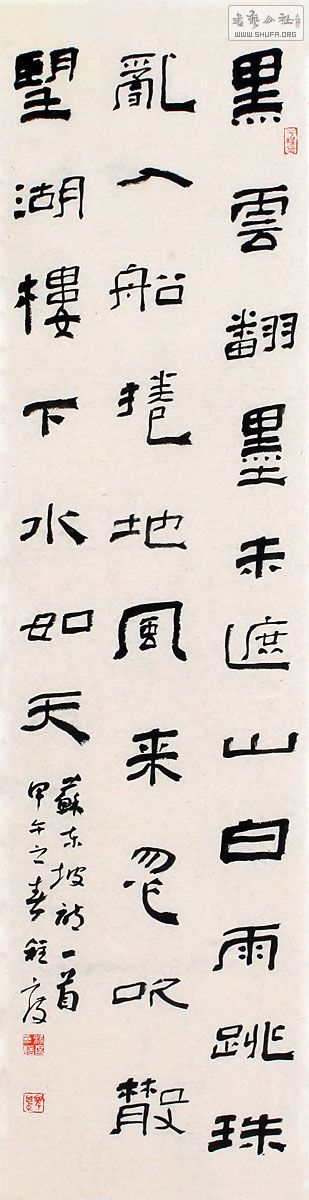 黑雲翻墨未遮山白雨跳珠
亂入船捲地風来忽吹散
望湖樓下水如天
蘇东坡詩一首
甲午之春程度
書藝公社
WWW.SHUFA.ORG